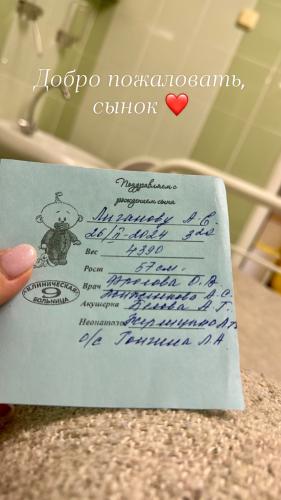 Добро пожаловать,
сынок ❤️
Поздравляем с
рождением сына
Лиганову А.С.
26/II-2024 3
Вес 4390
Рост 57 см.
Врач Фролова О.В.
А.С.
Акушерка Белова А.Г.
Неонатолог
о/с Гонгина Л.А
КЛИНИЧЕСКАЯ
9
БОЛЬНИЦА